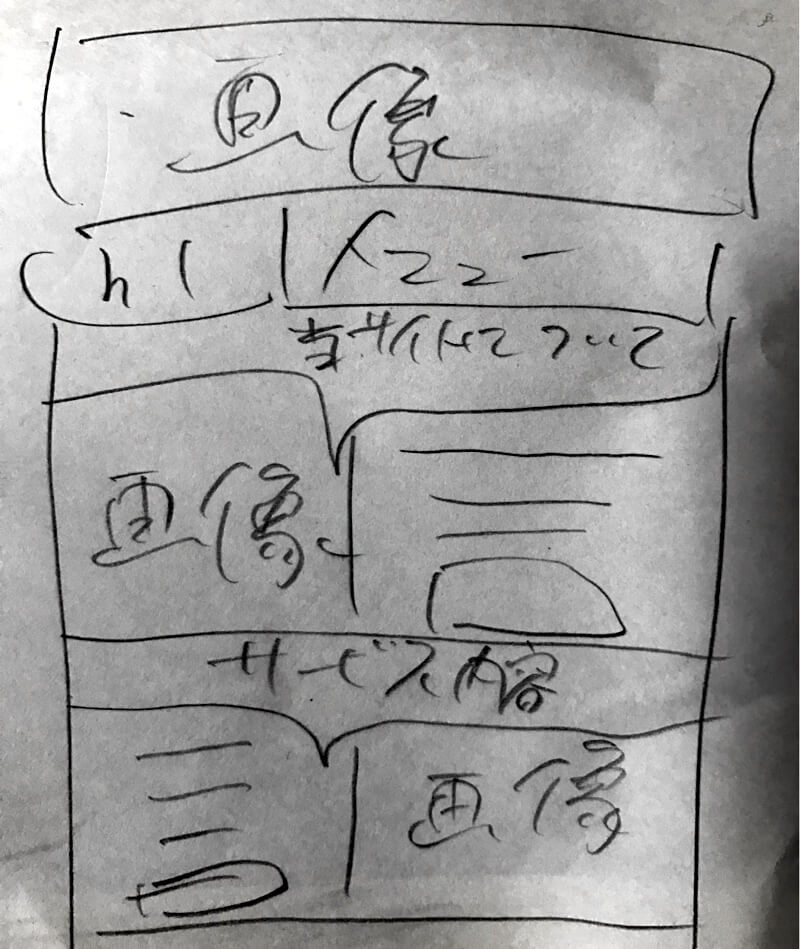 画像
h1 メニュー
当サイトについて
画像
サービス内容
画像